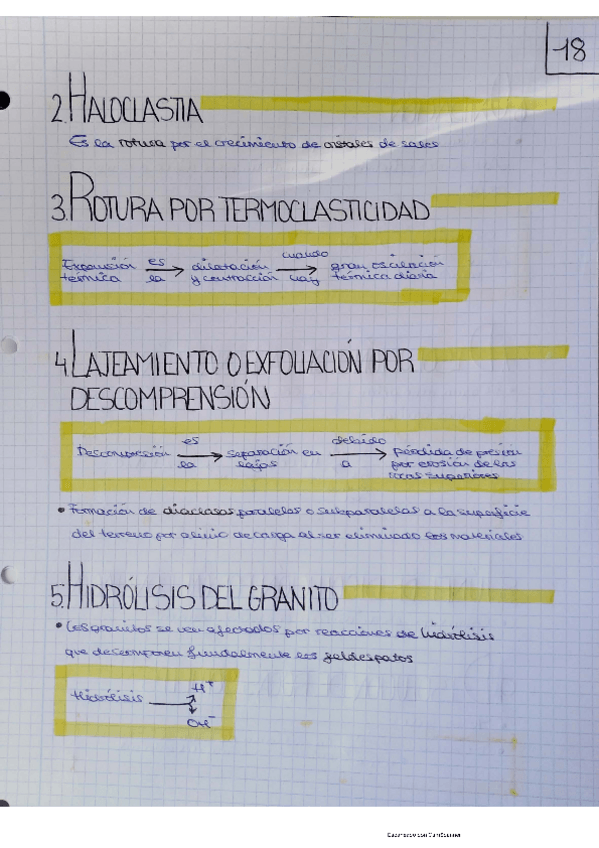 18
2. HALOCLASTIA
Es la rotura por el crecimiento de cristales de sales
3. ROTURA POR TERMOCLASTICIDAD
Expansión es dilatación cuando gran oscilación
térmica la y contracción hay térmica diaria
4. LAJEAMIENTO O EXFOLIACIÓN POR
DESCOMPRENSIÓN
Descompresión es separación en debido pérdida de presión
la lajas a por erosión de las
rocas superiores
• Formación de diaclasas paralelas o subparalelas a la superficie
del terreno por alivio de carga al ser eliminado los materiales
5. HIDRÓLISIS DEL GRANITO
• Los granitos se ven afectados por reacciones de hidrólisis
que descomponen los feldespatos
H+
Hidrólisis
OH-
Escaneado con CamScanner